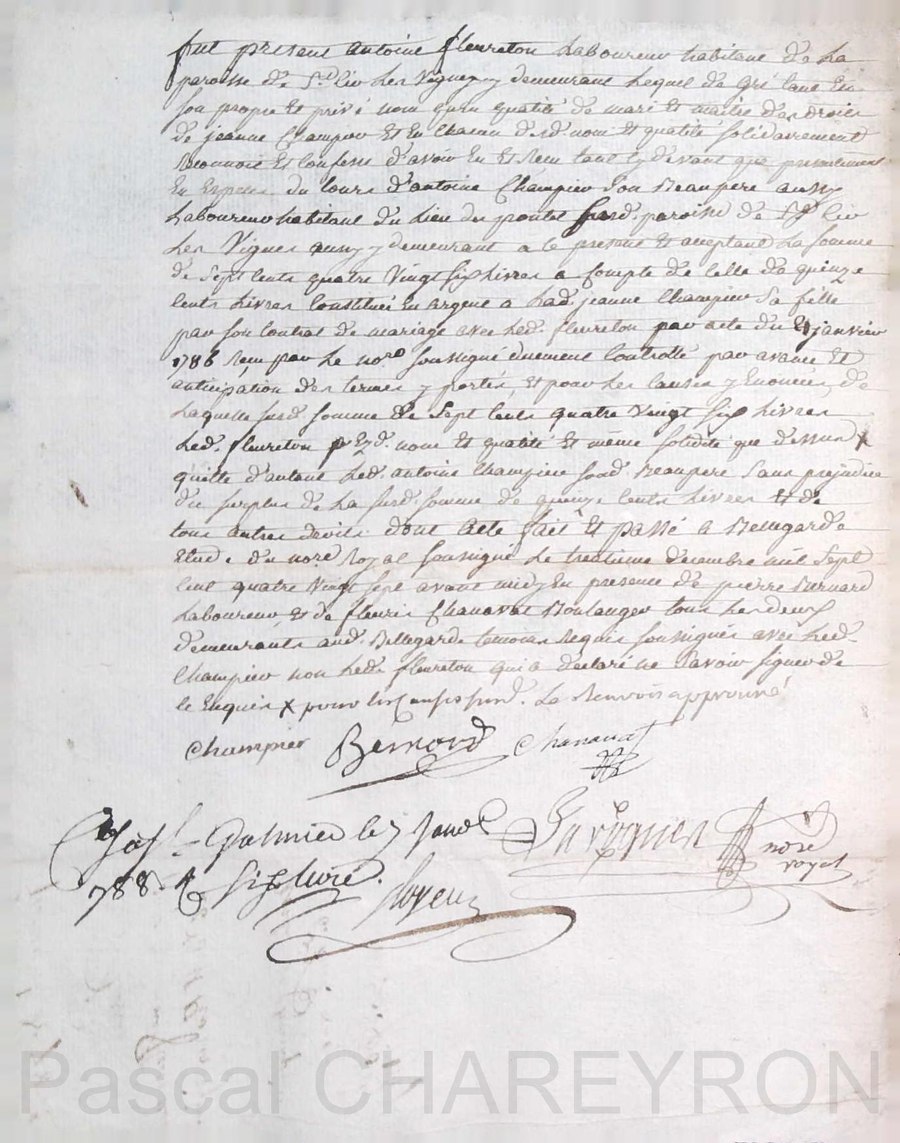 fut présent antoine fleureton Laboureur habitant de La
paroisse de St. Cir Les Vignes y demeurant Lequel de gré tant En
son propre Et privé nom qu'en qualité de mari et maitre des droits
de jeanne Champier Et En chacun desd. nom Et qualité solidairement
Reconnoit Et Confesse d'avoir Eu Et Reçu tant Cy devant que presentement
En Espèces du Cours d'antoine Champier son Beaupere aussy
Laboureur habitant du Lieu du susd. paroisse de St. Cir
Les Vignes aussy y demeurant a ce present Et acceptant La somme
de Sept Cents quatre Vingt Six Livres a Compte de Celle de quinze
Cents Livres Constitués En argent a Lad. jeanne Champier Sa fille
par son Contrat de mariage avec Led. fleureton par acte du janvier
1786 Reçu par Le nore. soussigné duement Controllé par avance Et
anticipation des termes y portés, Et pour Les Causes y Enoncées, de
Laquelle susd. somme de Sept Cents quatre Vingt Six Livres
Led. fleureton Ezd. noms Et qualité Et même solidité que dessus x
quitte d'autant Led. antoine Champier sond. Beaupere Sans prejudice
du surplus de La susd. somme de quinze Cents Livres Et de
tous autres droits dont Acte fait Et passé a Bellegarde
Etude du nore. Royal soussigné Le treizieme decembre mil Sept
Cent quatre Vingt Sept avant midy En presence de pierre Bernard
Laboureur Et de fleuris Chanavat Boulanger tous Les deux
demeurants aud. Bellegarde temoins Requis soussignés avec Led.
Champier non Led. fleureton qui a déclaré ne Savoir signer de
ce Enquis x Le Renvoi approuvé
Champier Bernard Chanavat
Galmier le 7 janv.
1788. nore
royal
Pascal CHAREYRON